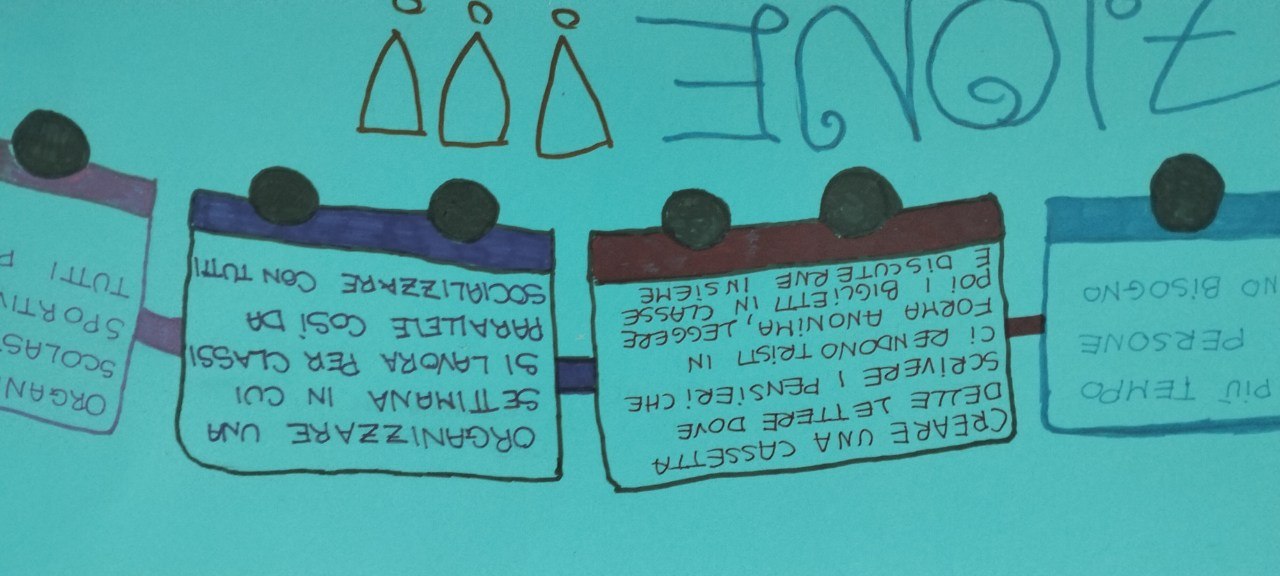 PIÙ TEMPO
PERSONE
NO BISOGNO
CREARE UNA CASSETTA
DELLE LETTERE DOVE
SCRIVERE I PENSIERI CHE
CI RENDONO TRISTI IN
FORMA ANONIMA, LEGGERE
POI I BIGLIETTI IN CLASSE
E DISCUTERNE INSIEME
ORGANIZZARE UNA
SETTIMANA IN CUI
SI LAVORA PER CLASSI
PARALLELE COSÌ DA
SOCIALIZZARE CON TUTTI
ORGANI
SCOLAS
SPORTIV
TUTTI P
ZIONE